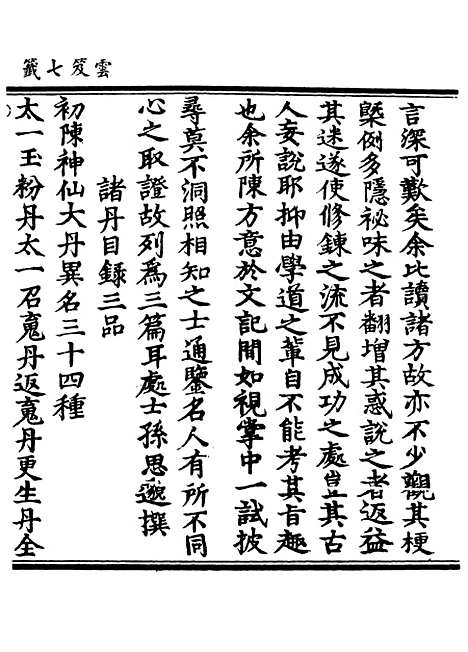 雲笈七籤
言深可歎矣余比讀諸方故亦不少觀其梗
槩例多隱祕味之者翻增其惑說之者返益
其迷遂使修鍊之流不見成功之處豈其古
人妄說耶抑由學道之輩自不能考其旨趣
也余所陳方意於文記間如視掌中一試披
尋莫不洞照相知之士通鑒名人有所不同
心之取證故列爲三篇耳處士孫思邈撰
諸丹目録三品
初陳神仙大丹異名三十四種
太一玉粉丹太一召魂丹返魂丹更生丹全